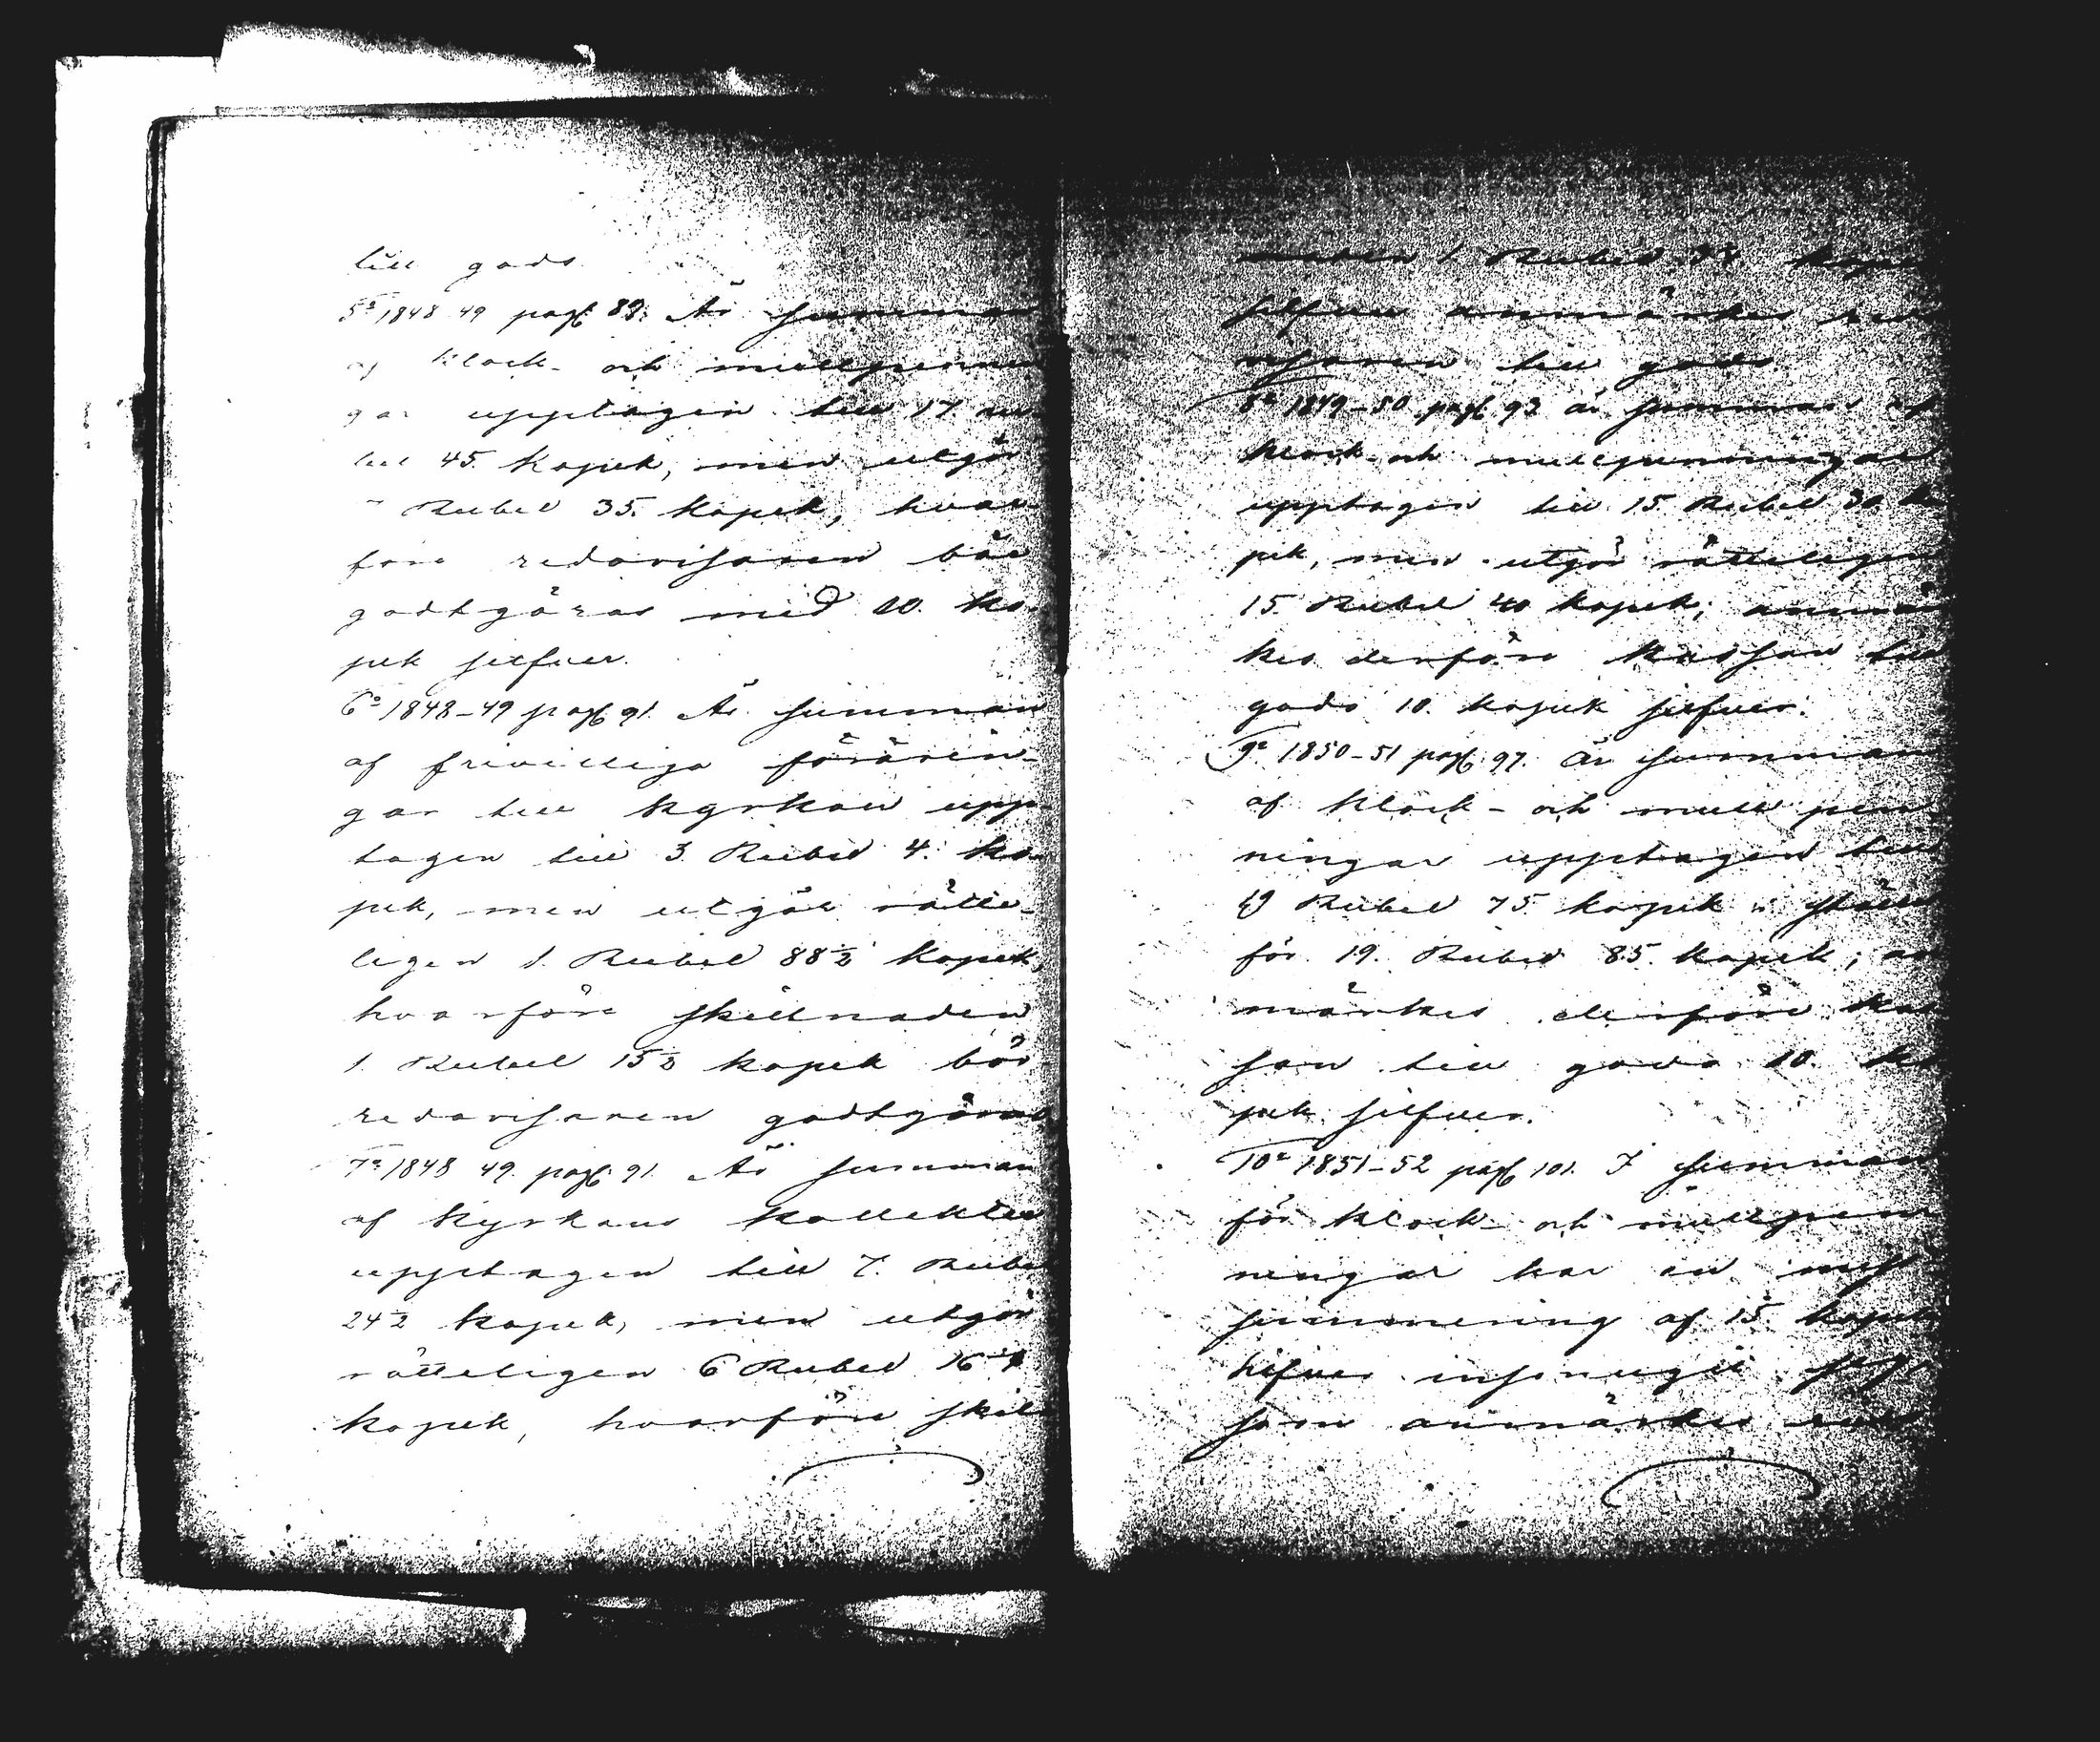 till godo.
5º 1848 49 pag: 89: Är summan
af klock- och mullpennin
gar upptagen till 17 ru-
bel 45. kopek, men utgör
Rubel 35. kopek, hvar-
före redovisaren bör
godtgöras med 10. ko-
pek silfver.
6º 1848–49 pag: 91. Är summan
af frivilliga föräring-
gar till kyrkan upp-
tagen till 3. Rubel 4. ko-
pek, men utgör rätte-
ligen 1. Rubel 88½ kopek,
hvarföre skillnaden
1. Rubel 15½ kopek bör
redovisaren godtgöras
7º 1848 49. pag: 91. Är summan
af kyrkans kollekter
upptagen till 7. Rubel
24½ kopek, men utgör
rätteligen 6 Rubel 16
kopek, hvarföre skil
naden 1. Rubel kopek
silfver anmärkes redo
visaren till godo.
8º 1849–50 pag: 93 är summan af
klock- och mullpenningar
upptagen till 15 Rubel 30 ko
pek, men utgör rätteligen
15. Rubel 40 kopek; anmär
kes derföre kassan till
godo 10. kopek silfver.
9º 1850–51 pag: 97. är summan
af klock- och mull pen
ningar upptagen till
19 Rubel 75. kopek i ställe
för 19. Rubel 85. kopek; an
märkes derföre kas
san till godo 10. ko
pek silfver.
10º 1851–52 pag: 101. I summan
för klock- och mullpen
ningar har en mis
summering af 15 kopek
silfver insmugit sig,
som anmärkes